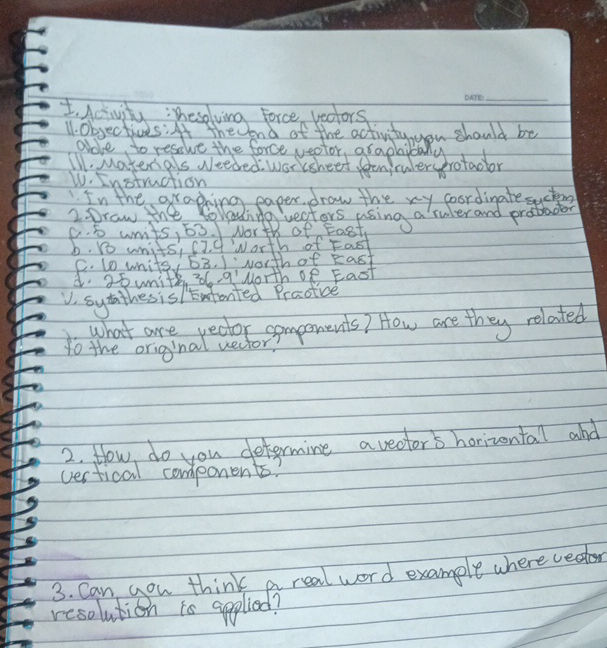 DATE:
I. Activity : Resolving Force Vectors
II. Objectives: At the end of the activity, you should be
able to resolve the force vector, graphically
III. Materials Needed: Worksheet, pen, ruler, protactor
IV. Instruction
1. In the graphing paper, draw the xy coordinate system
2. Draw the following vectors using a ruler and protractor
a. 5 units, 53.1° North of East
b. 13 units, 67.4° North of East
c. 10 units, 53.1° North of East
d. 25 units, 36.9° North of East
V. Synthesis/Extented Practice
1. What are vector components? How are they related
to the original vector?
2. How do you determine a vector's horizontal and
vertical components?
3. Can you think a real word example where vector
resolution is applied?